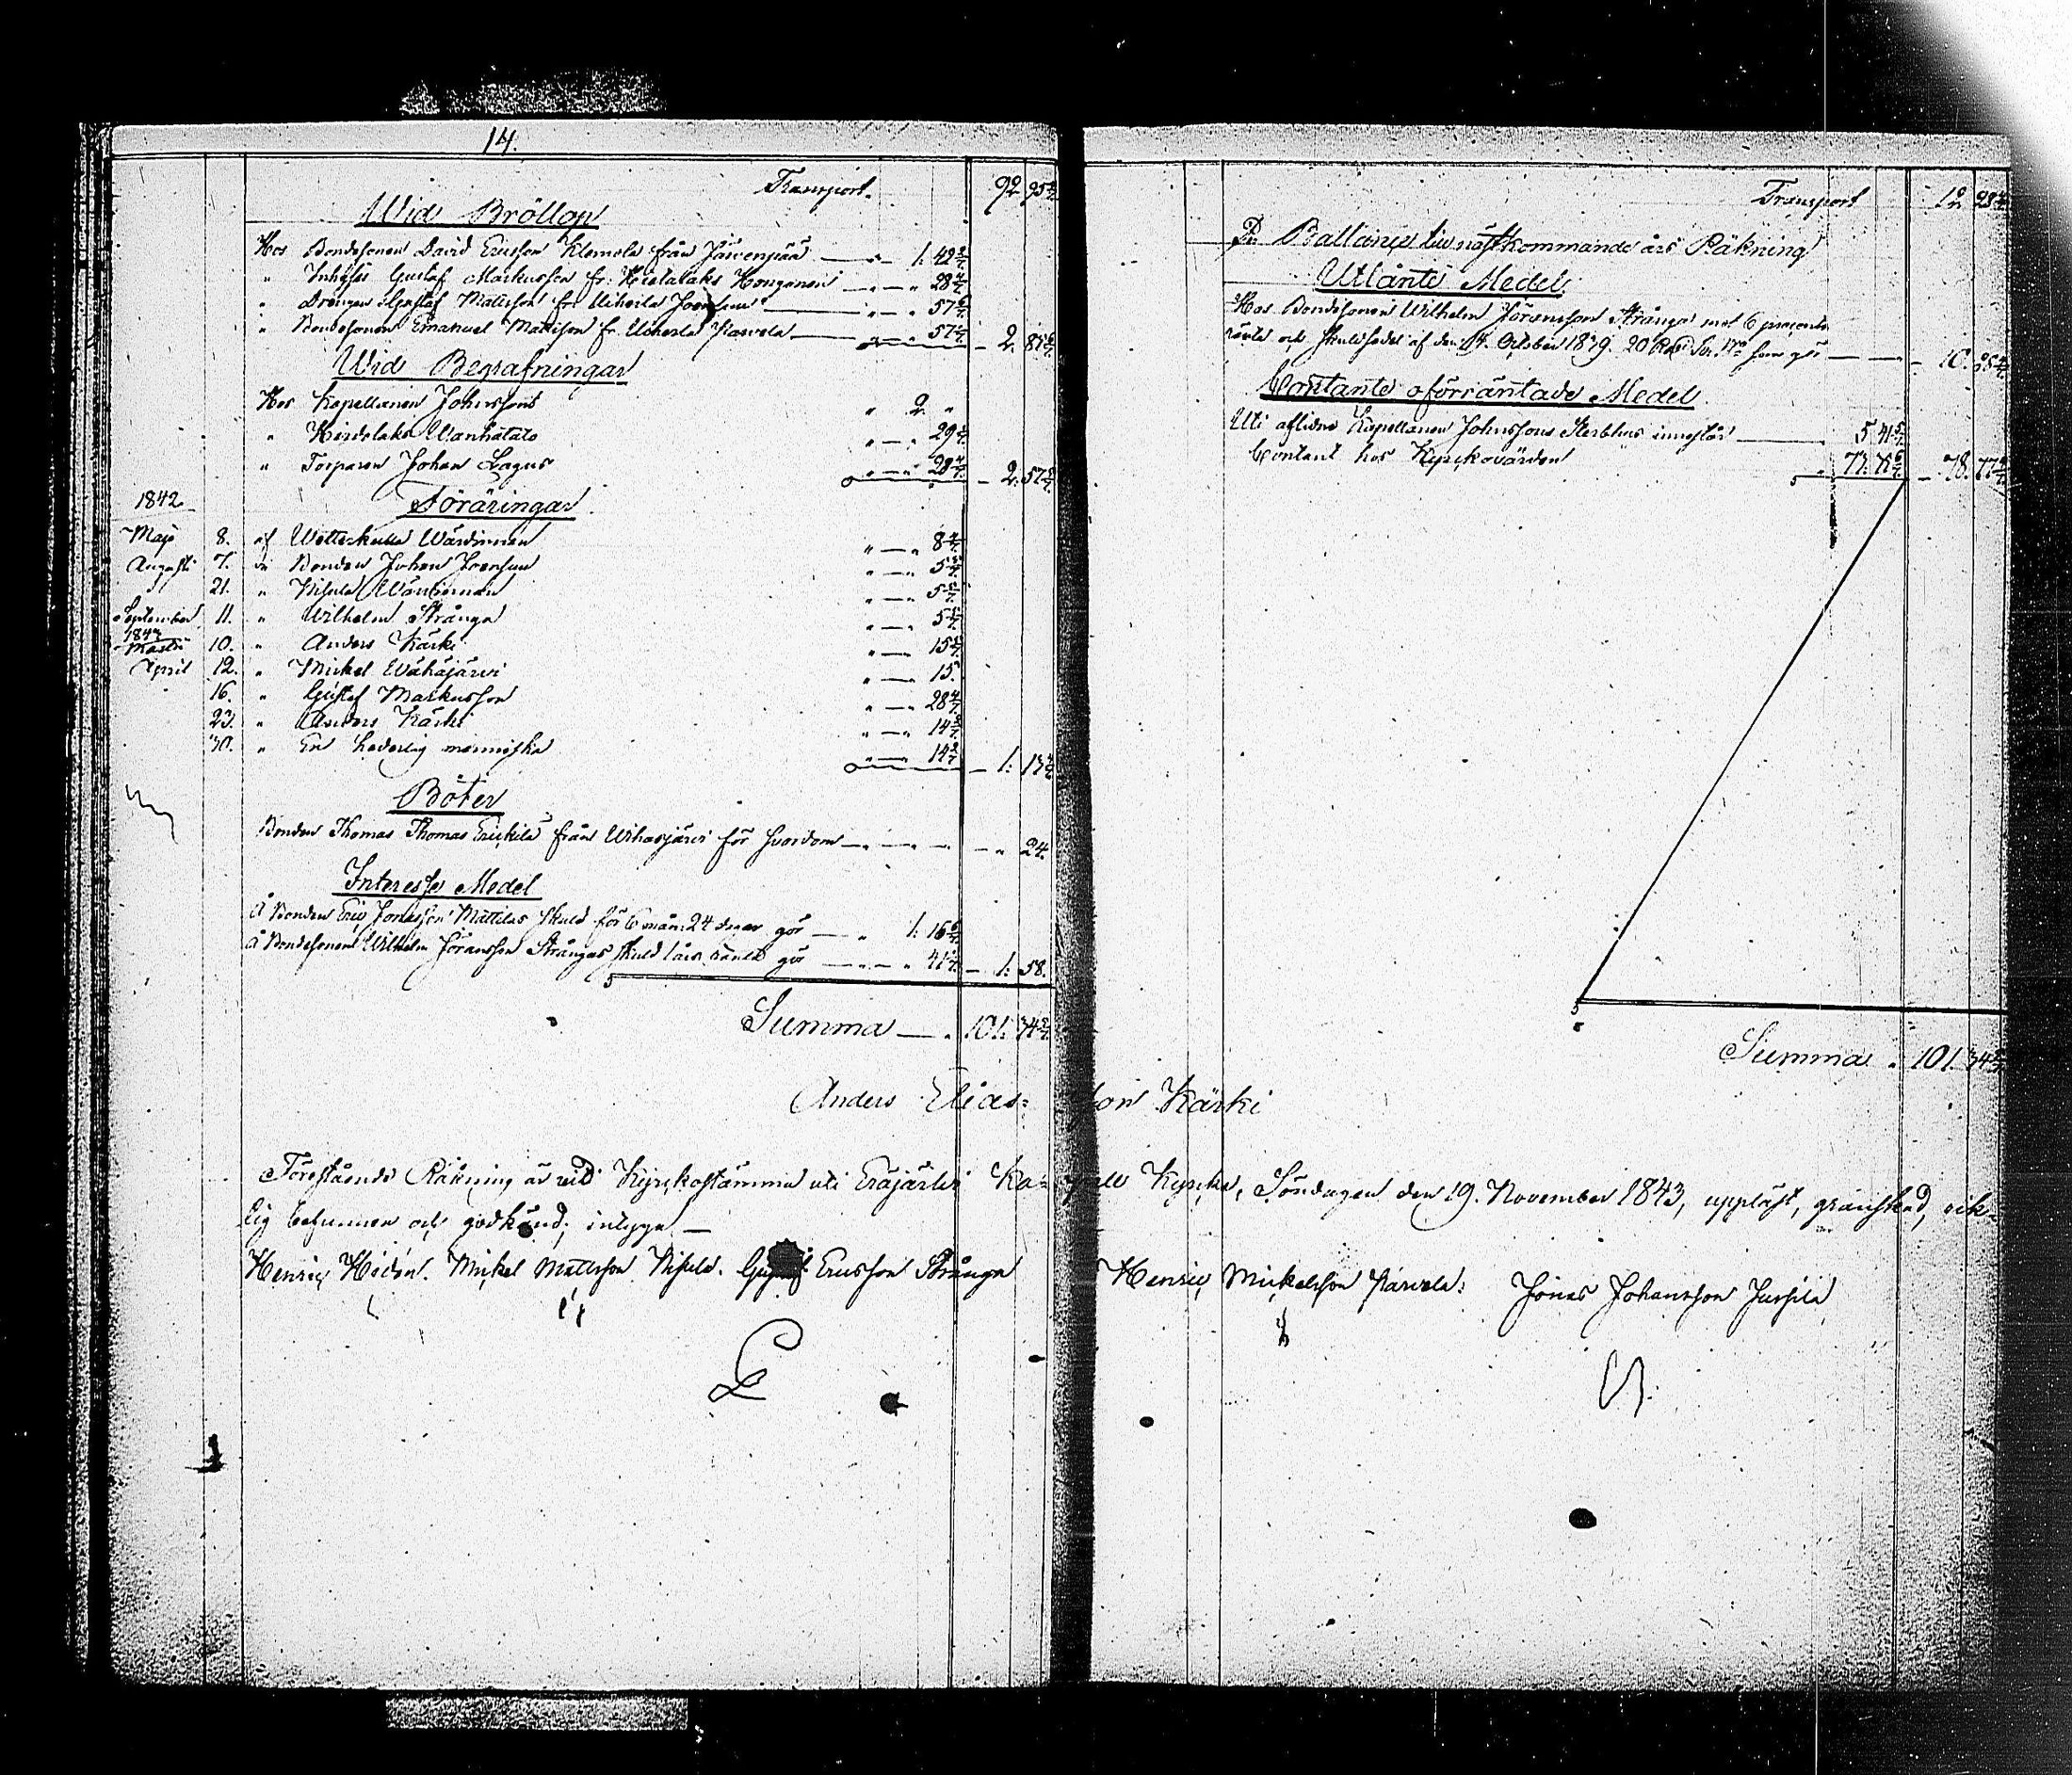 14.
Transport. 92. 95 2/7
Wid Bröllop
Hos Bondesonen David Ericsson Klemola från Järvenpää — " — 1. 42 6/7
" Inhyses Gustaf Markusson fr. Hietalaks Hongonen — " — " 28 4/7
" Drängen Gustaf Mattsson fr. Uiherla — " — " 57 1/7
" Bondesonen Emanuel Mattsson fr. Uiherla Parvela — " — " 57 1/7 — 2. 85 5/7
Wid Begrafningar
Hos Kapellanen Johnssons " 2. "
" Wanhatalo " — " 29
" Torparen Johan Lagus " — " 28 4/7 — 2. 57
1842 Föräringar
Maji 8. af Wärdinnan " — " 8 4/7
Augusti 7. do Bonden Johan " — " 5 5/7
21. " Nikula Wärdinnan " — " 5 5/7
September 11. " Wilhelm Strånga " — " 5 5/7
1843
Martii 10. " Anders Kärki " — " 15
April 12. " Mickel Wähäjärvi " — " 15.
16. " Gustaf Markusson " — " 28 4/7
23. " Anders Kärki " — " 14 2/7
30. " En hederlig menniska " — " 14 2/7 — 1. 13
Böter
Bonden Thomas Thomas Erickilä från Uihasjärvi för hordom — " — " 24.
Interesse Medel
Å Bonden Eric Jonasson Mattilas skuld för 6 mån: 24 dagar gör — " 1. 16 6/7
Å Bondesonen Wilhelm Jöransson Strångas skuld 1 års ränta gör — " — " 41 1/7 — 1. 58.
Summa — " 101. 34 2/7
Transport 12. 28
Pr Ballance till nästkommande års Räkning
Utlånte Medel
Hos Bondesonen Wilhelm Jöransson Strånga mot 6 procents
ränta och skuldsedel af den 14. October 1839. 20 som gör — — 10. 28
Contante oförräntade Medel
Uti aflidne Kapellanen Johnssons Sterbhus innestår — 5. 41 5/7
Contant hos Kyrckovärden " 73. — 78. 77
Summa " 101. 34 2/7
Anders Elias=son Kärki
Förestående Räkning är vid Kyrckostämma uti Eräjärvi Ka=pell Kyrcka, Söndagen den 19. November 1843, uppläst, granskad, rik=
tig befunnen och godkänd; intyga —
Henric Hedén. Mickel Mattsson Nikula. Gustaf Ericsson Strånga Henric Mickelsson Parvela: Jonas Johansson Jussila